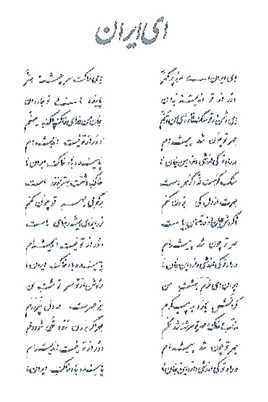 ای ایران
ای ایران ای مرز پرگهر ای خاکت سرچشمه هنر
دور از تو اندیشه بدان پاینده مانی تو جاودان
ای دشمن ار تو سنگ خاره‌ای من آهنم جان من فدای خاک پاک میهنم
مهر تو چون شد پیشه‌ام دور از تو نیست اندیشه‌ام
در راه تو کی ارزشی دارد این جان ما پاینده باد خاک ایران ما
سنگ کوهت در و گوهر است خاک دشتت بهتر از زر است
مهرت از دل کی برون کنم برگو بی مهر تو چون کنم
تا گردش جهان و دور آسمان بپاست نور ایزدی همیشه رهنمای ماست
مهر تو چون شد پیشه‌ام دور از تو نیست اندیشه‌ام
در راه تو کی ارزشی دارد این جان ما پاینده باد خاک ایران ما
ایران ای خرم بهشت من روشن از تو سرنوشت من
گر آتش بارد به پیکرم جز مهرت در دل نپرورم
از آب و خاک و مهر تو سرشته شد گلم مهر اگر برون رود تهی شود دلم
مهر تو چون شد پیشه‌ام دور از تو نیست اندیشه‌ام
در راه تو کی ارزشی دارد این جان ما پاینده باد خاک ایران ما